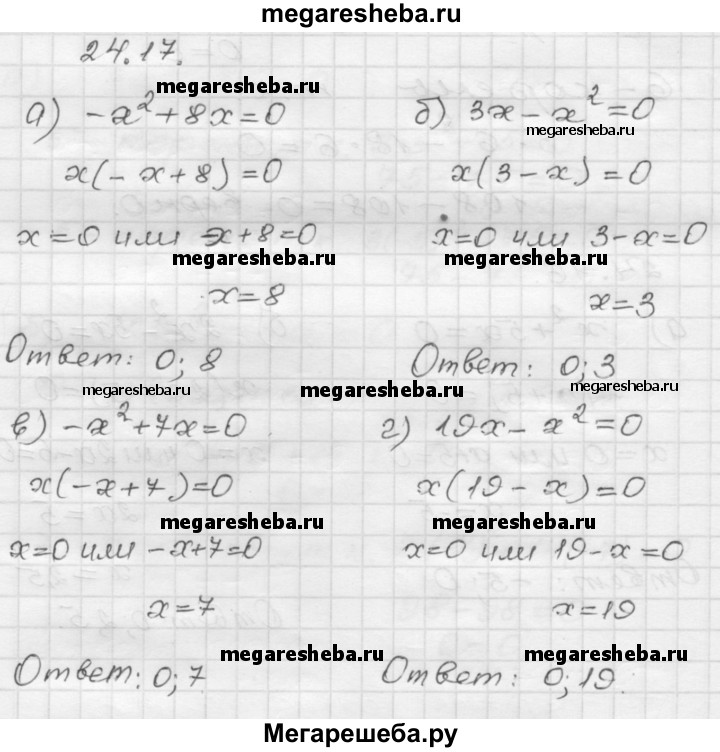 megaresheba.ru
24.17.
megaresheba.ru
а) -x²+8x=0
x(-x+8)=0
x=0 или -x+8=0
megaresheba.ru
x=8
Ответ: 0; 8
megaresheba.ru
б) 3x-x²=0
megaresheba.ru
x(3-x)=0
x=0 или 3-x=0
megaresheba.ru
x=3
Ответ: 0; 3
megaresheba.ru
megaresheba.ru
в) -x²+7x=0
x(-x+7)=0
megaresheba.ru
x=0 или -x+7=0
x=7
Ответ: 0; 7
megaresheba.ru
г) 19x-x²=0
x(19-x)=0
megaresheba.ru
x=0 или 19-x=0
x=19
megaresheba.ru
Ответ: 0; 19.
Мегарешеба.ру